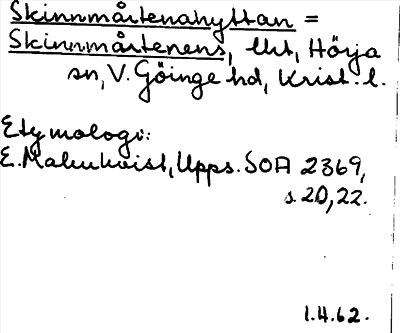 Skinnmårtenahyttan =
Skinnmårtenens, tht, Hörja
sn, V. Göinge hd, Krist. l.
Etymologi:
E. Malmkvist, Upps. SOA 2369,
s. 20, 22.
1.4.62.